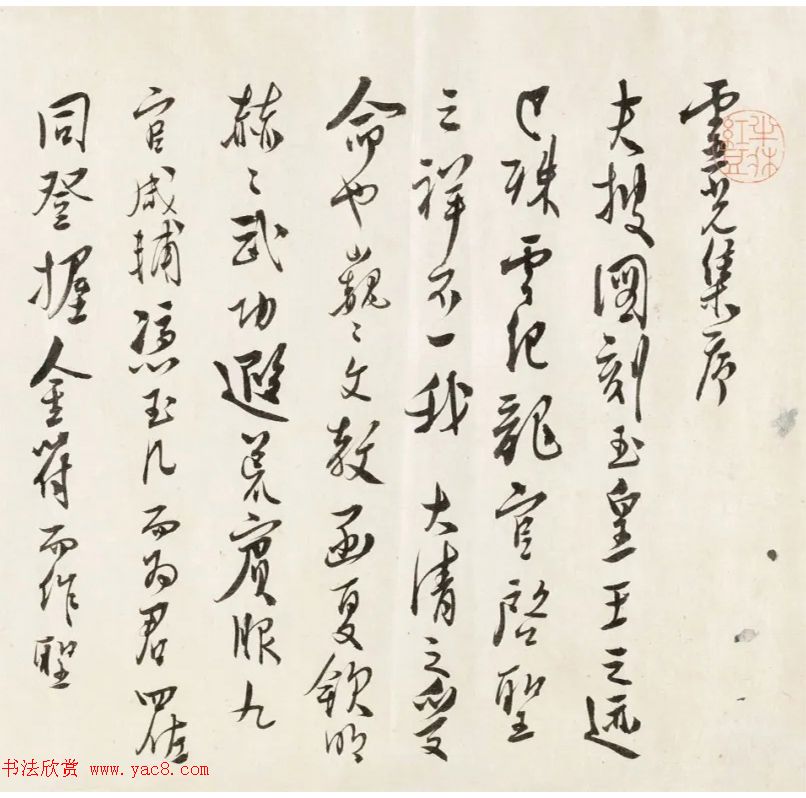 靈光集序
夫披圖刻玉皇王之迹
已殊雲紀龍官啓聖
之祥不一我 大清之受
命也巍〻文教函夏欽明
赫〻武功遐荒賓服九
官咸輔憑玉几而為君四佐
同登握金符而作聖
书法欣赏 www.yac8.com